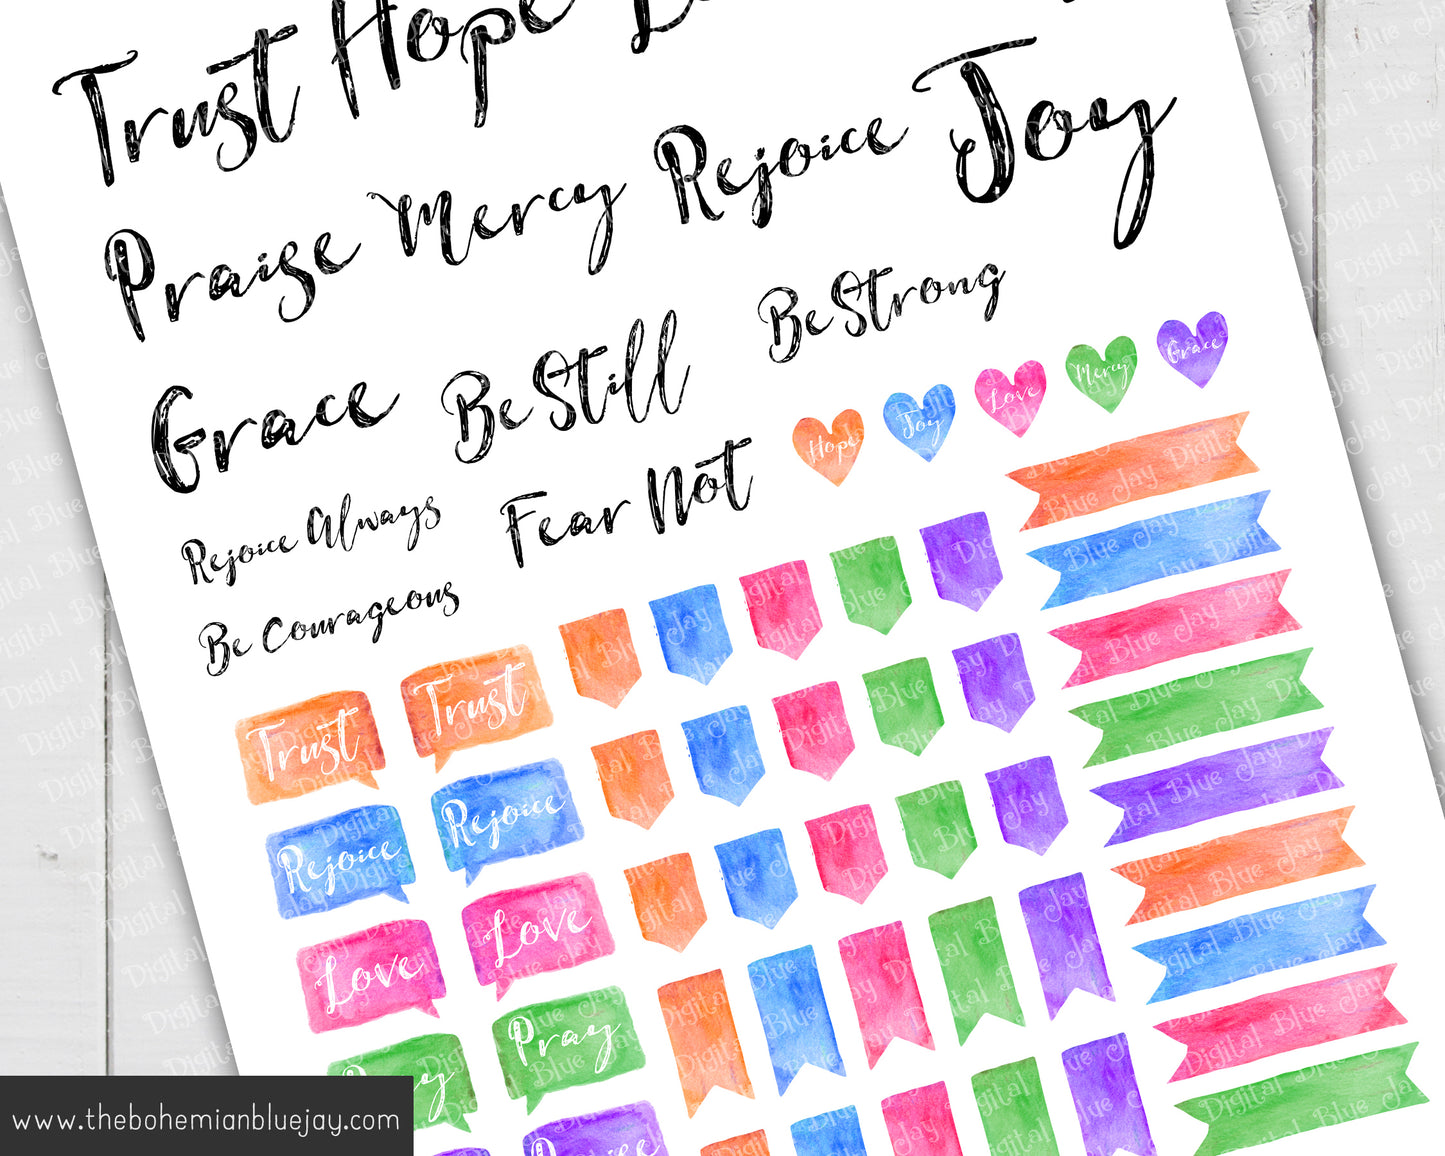 Trust Hope
Praise Mercy Rejoice Joy
Grace Be Still Be Strong
Rejoice Always Fear Not
Be Courageous
Hope Joy Love Mercy Grace
Trust Trust
Rejoice Rejoice
Love Love
Pray
Praise
Digital Blue Jay
www.thebohemianbluejay.com